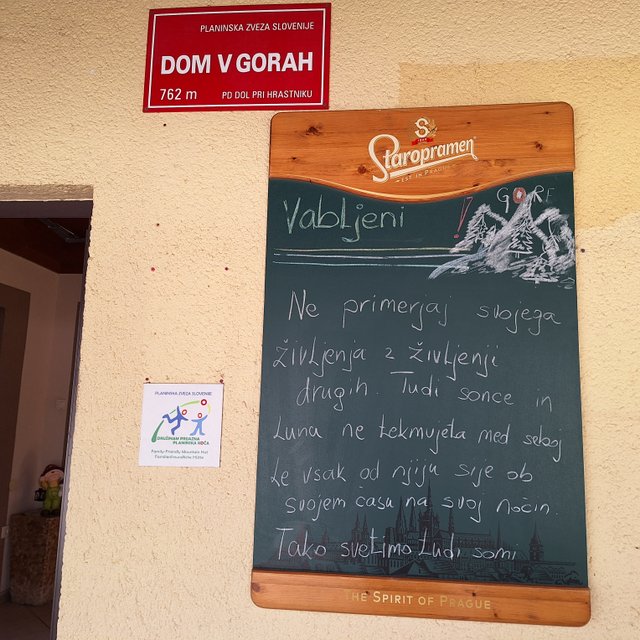 PLANINSKA ZVEZA SLOVENIJE
DOM V GORAH
762 m PD DOL PRI HRASTNIKU
S
Staropramen
EST. IN PRAGUE
GORE
Vabljeni !
Ne primerjaj svojega
življenja z življenji
drugih. Tudi sonce in
Luna ne tekmujeta med seboj
te vsak od njiju sije ob
svojem času na svoj način.
Tako svetimo tudi sami
THE SPIRIT OF PRAGUE
PLANINSKA ZVEZA SLOVENIJE
DRUŽINAM PRIJAZNA
PLANINSKA KOČA
Family-Friendly Mountain Hut
Familienfreundliche Hütte